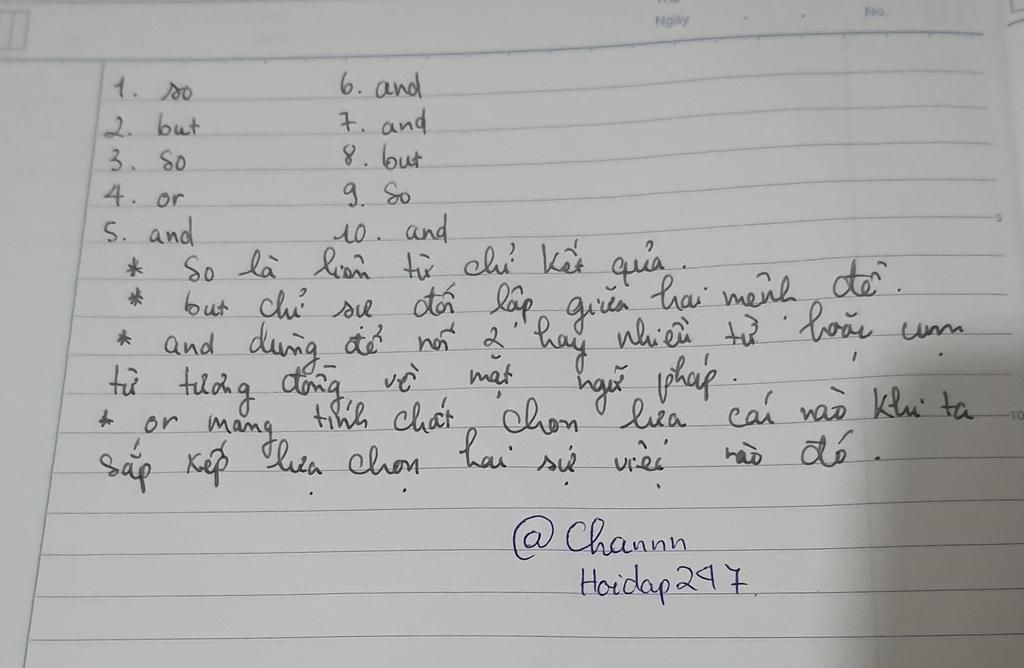 Ngày
No.
1. so 6. and
2. but 7. and
3. so 8. but
4. or 9. so
5. and 10. and
* so là liên từ chỉ kết quả.
* but chỉ sự đối lập giữa hai mệnh đề.
* and dùng để nối 2 hay nhiều từ hoặc cụm
từ tương đồng về mặt ngữ pháp.
* or mang tính chất chọn lựa cái nào khi ta
sắp xếp lựa chọn hai sự việc nào đó.
@Channn
Hoidap247
5
10